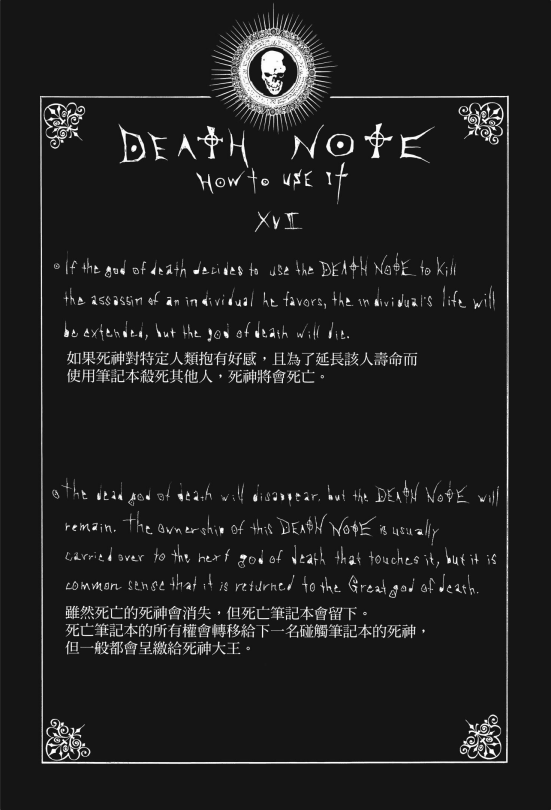 DEATH NOTE
HOW to USE IT
XVII
If the god of death decides to use the DEATH NOTE to kill
the assassin of an individual he favors, the individual's life will
be extended, but the god of death will die.
如果死神對特定人類抱有好感，且為了延長該人壽命而
使用筆記本殺死其他人，死神將會死亡。
The dead god of death will disappear, but the DEATH NOTE will
remain. The ownership of this DEATH NOTE is usually
carried over to the next god of death that touches it, but it is
common sense that it is returned to the Great god of death.
雖然死亡的死神會消失，但死亡筆記本會留下。
死亡筆記本的所有權會轉移給下一名碰觸筆記本的死神，
但一般都會呈繳給死神大王。